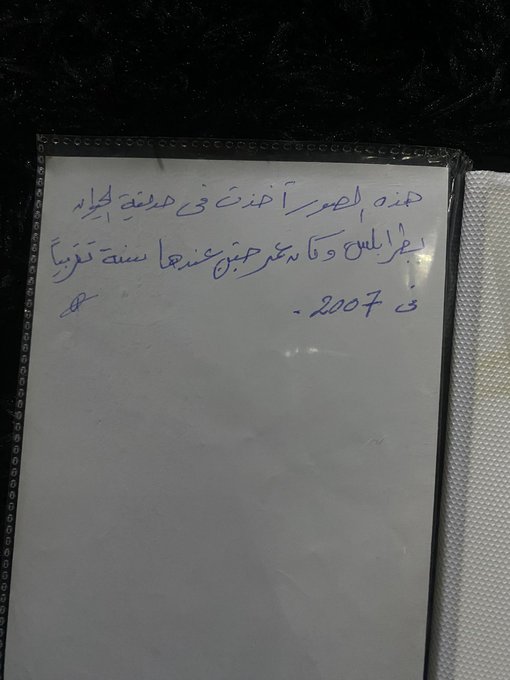 هذه الصور أخذت فى حديقة الحيوان
بطرابلس وكان عمر عندها سنة تقريباً
فى 2007 .